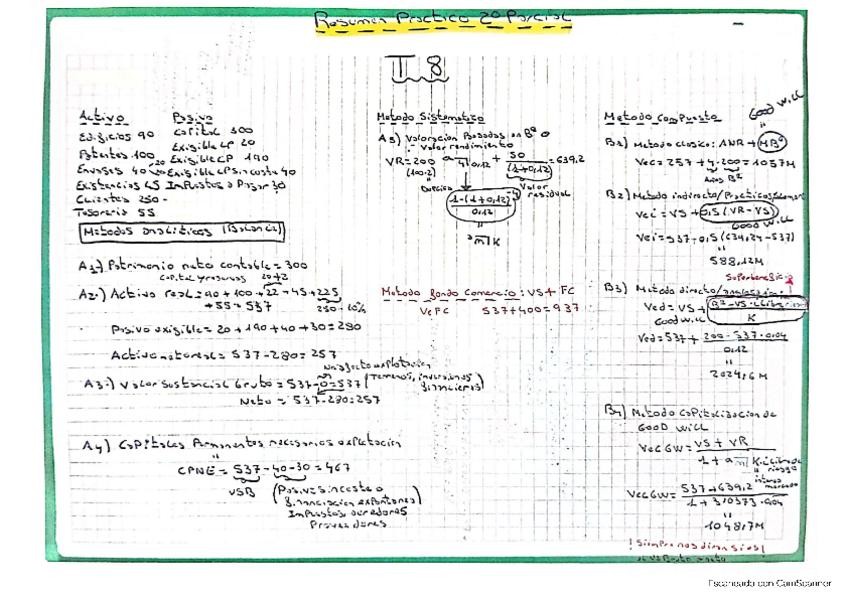 Resumen Practico 2º Parcial
T. 8
Activo Pasivo
Edificios 90 Capital 300
Patentes 100 Exigible LP 20
Envases 40 Exigible CP 190
Exigible CP sin coste 40
Existencias 45 Impuestos a Pagar 30
Clientes 250
Tesoreria 55
Metodos analiticos (Balance)
A1) Patrimonio neto contable = 300
Capital y reservas 20+2
A2) Activo real = 90 + 100 + 22 + 45 + 225
+ 55 = 537 250 - 10%
Pasivo exigible = 20 + 190 + 40 + 30 = 280
Activo neto real = 537 - 280 = 257
No afecto explotación
A3) Valor Sustancial Bruto = 537 - 0 = 537 (Terrenos, inversiones financieras)
Neto = 537 - 280 = 257
A4) Capitales Permanentes necesarios explotación
CPNE = 537 - 40 - 30 = 467
VSB (Pasivo sin coste o
financiacion espontanea)
Impuestos acreedores
Proveedores
Metodo Sistematico
A5) Valoracion Basadas en Bº o
Valor rendimiento
VR = 200 a 4 0,12 + 50 / (1+0,12) = 639,2
(100·2)
Duracion Valor residual
1-(1+0,12)-4 / 0,12
"
a m K
Metodo fondo Comercio: VS + FC
VeFC 537 + 400 = 937
Metodo Compuesto
GOOD WILL
"
B1) Metodo clasico: ANR + nBº
Vec = 257 + 4·200 = 1057M
Años Bº
B2) Metodo indirecto/Practicos/
Vei = VS + 0,5 (VR - VS)
GOOD WILL
Vei = 537 + 0,5 (639,24 - 537)
"
588,12M
Superbeneficio
B3) Metodo directo/anglosajon
Ved = VS + Bº - VS · i / K
GOOD WILL
Ved = 537 + 200 - 537·0,04 / 0,12
"
2024,6M
B4) Metodo Capitalizacion de
GOOD WILL
VecGW = VS + VR / 1 + a m K i libre de riesgo
interes mercado
VecGW = 537 + 639,2 / 1 + 3,0373·0,04
"
1048,7M
! Siempre nos dirán
Escaneado con CamScanner